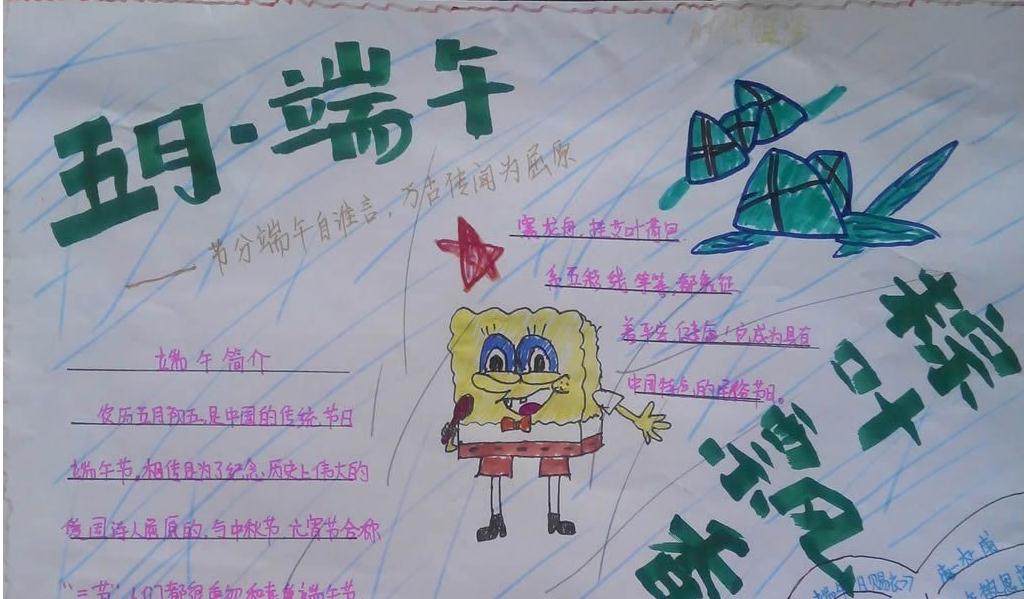 五月·端午
——节分端午自谁言,万古传闻为屈原
赛龙舟,挂艾叶荷包
系五彩线等等,都象征
着平安健康!它成为具有
中国特点的民俗节日。
端午简介
农历五月初五,是中国的传统节日
端午节,相传是为了纪念历史上伟大的
爱国诗人屈原的,与中秋节元宵节合称
"三节"人们都很重
端午节
粽叶包
着
唐—杜甫
端午日赐衣